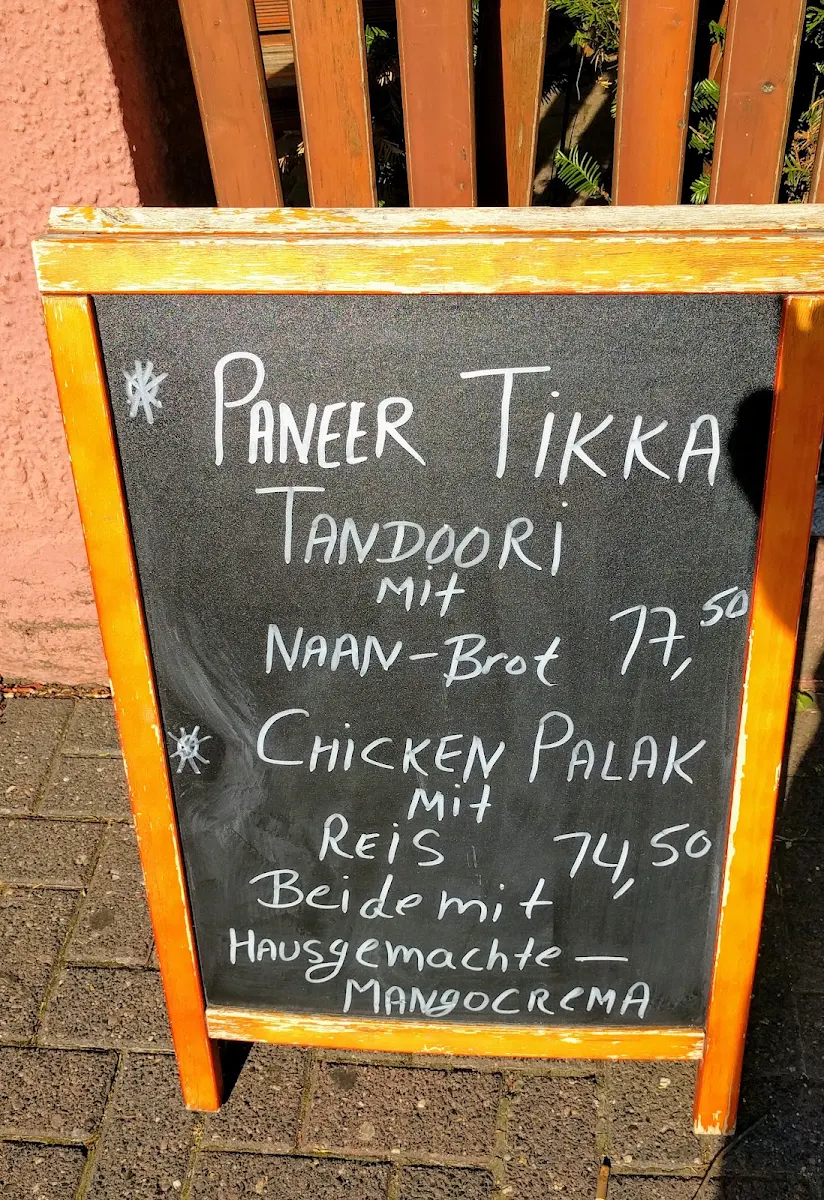 * PANEER TIKKA
TANDOORI
mit
NAAN-Brot 17,50
* CHICKEN PALAK
mit
REiS 14,50
Beide mit
HAUSgemachte-
MANgOCREMA